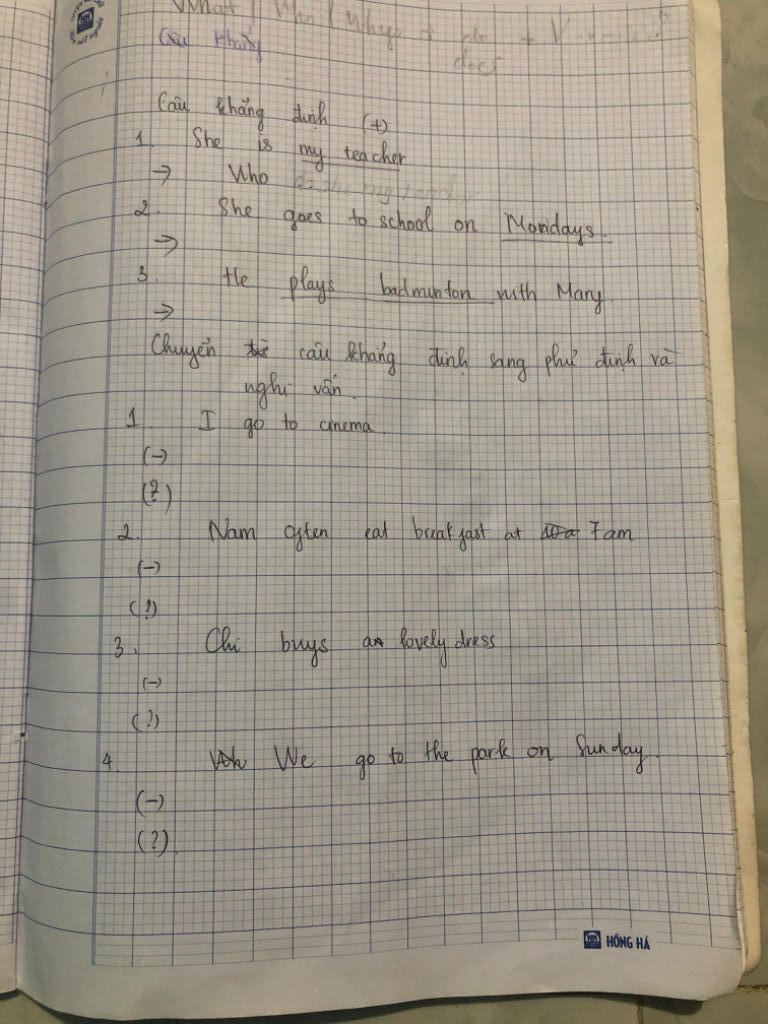 What / Who / Why + do + V ......?
does
Câu khẳng
Câu khẳng định (+)
1. She is my teacher
→ Who
2. She goes to school on Mondays.
→
3. He plays badminton with Mary
→
Chuyển từ câu khẳng định sang phủ định và
nghi vấn.
1 I go to cinema
(-)
(?)
2. Nam often eat breakfast at 7 am
(-)
(?)
3. Chi buys a lovely dress
(-)
(?)
4. We go to the park on Sunday.
(-)
(?)
HỒNG HÀ